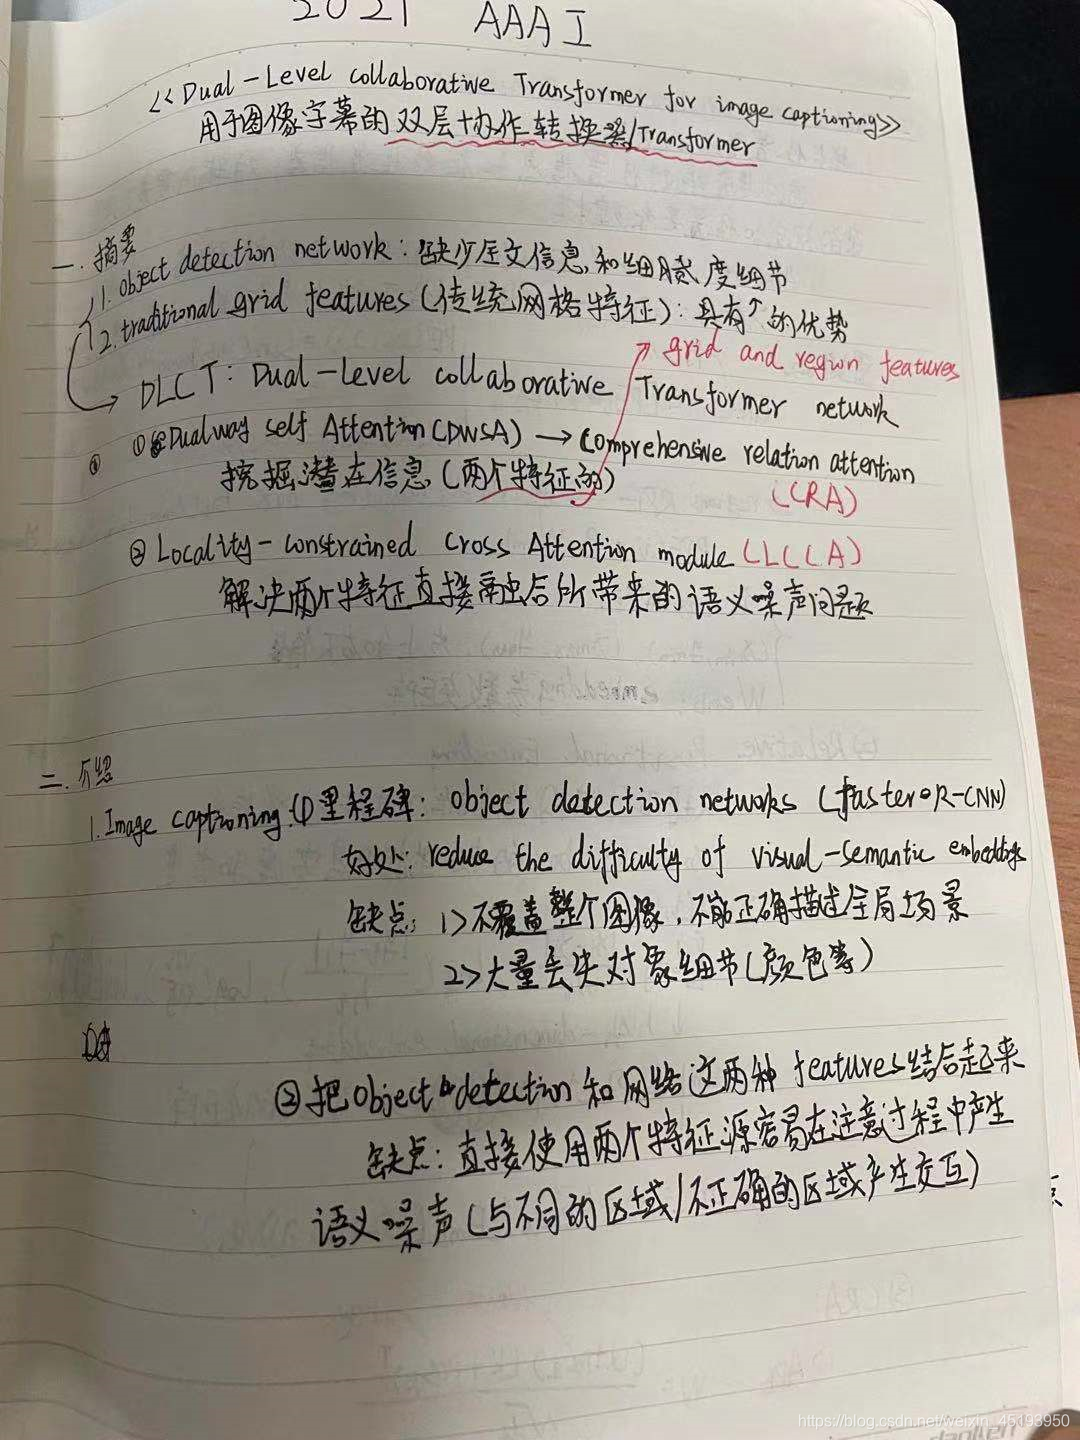 2021 AAAI
<<Dual-Level collaborative Transformer for image captioning>>
用于图像字幕的双层协作转换器/Transformer
一.摘要
1. object detection network: 缺少上下文信息和细腻度细节
2. traditional grid features (传统网格特征): 具有↑的优势
grid and region features
DLCT: Dual-Level collaborative Transformer network
① Dualway self Attention (DWSA) → Comprehensive relation attention
挖掘潜在信息 (两个特征的) (CRA)
② Locality-constrained Cross Attention module (LCCA)
解决两个特征直接融合后所带来的语义噪声问题
二.介绍
1. Image captioning: ①里程碑: object detection networks (faster R-CNN)
好处: reduce the difficulty of visual-semantic embeddings
缺点: 1>不覆盖整个图像, 不能正确描述全局场景
2>大量丢失对象细节(颜色等)
②把object detection 和网络这两种 features结合起来
缺点: 直接使用两个特征源容易在注意过程中产生
语义噪声(与不同的区域/不正确的区域产生交互)
https://blog.csdn.net/weixin_45193950